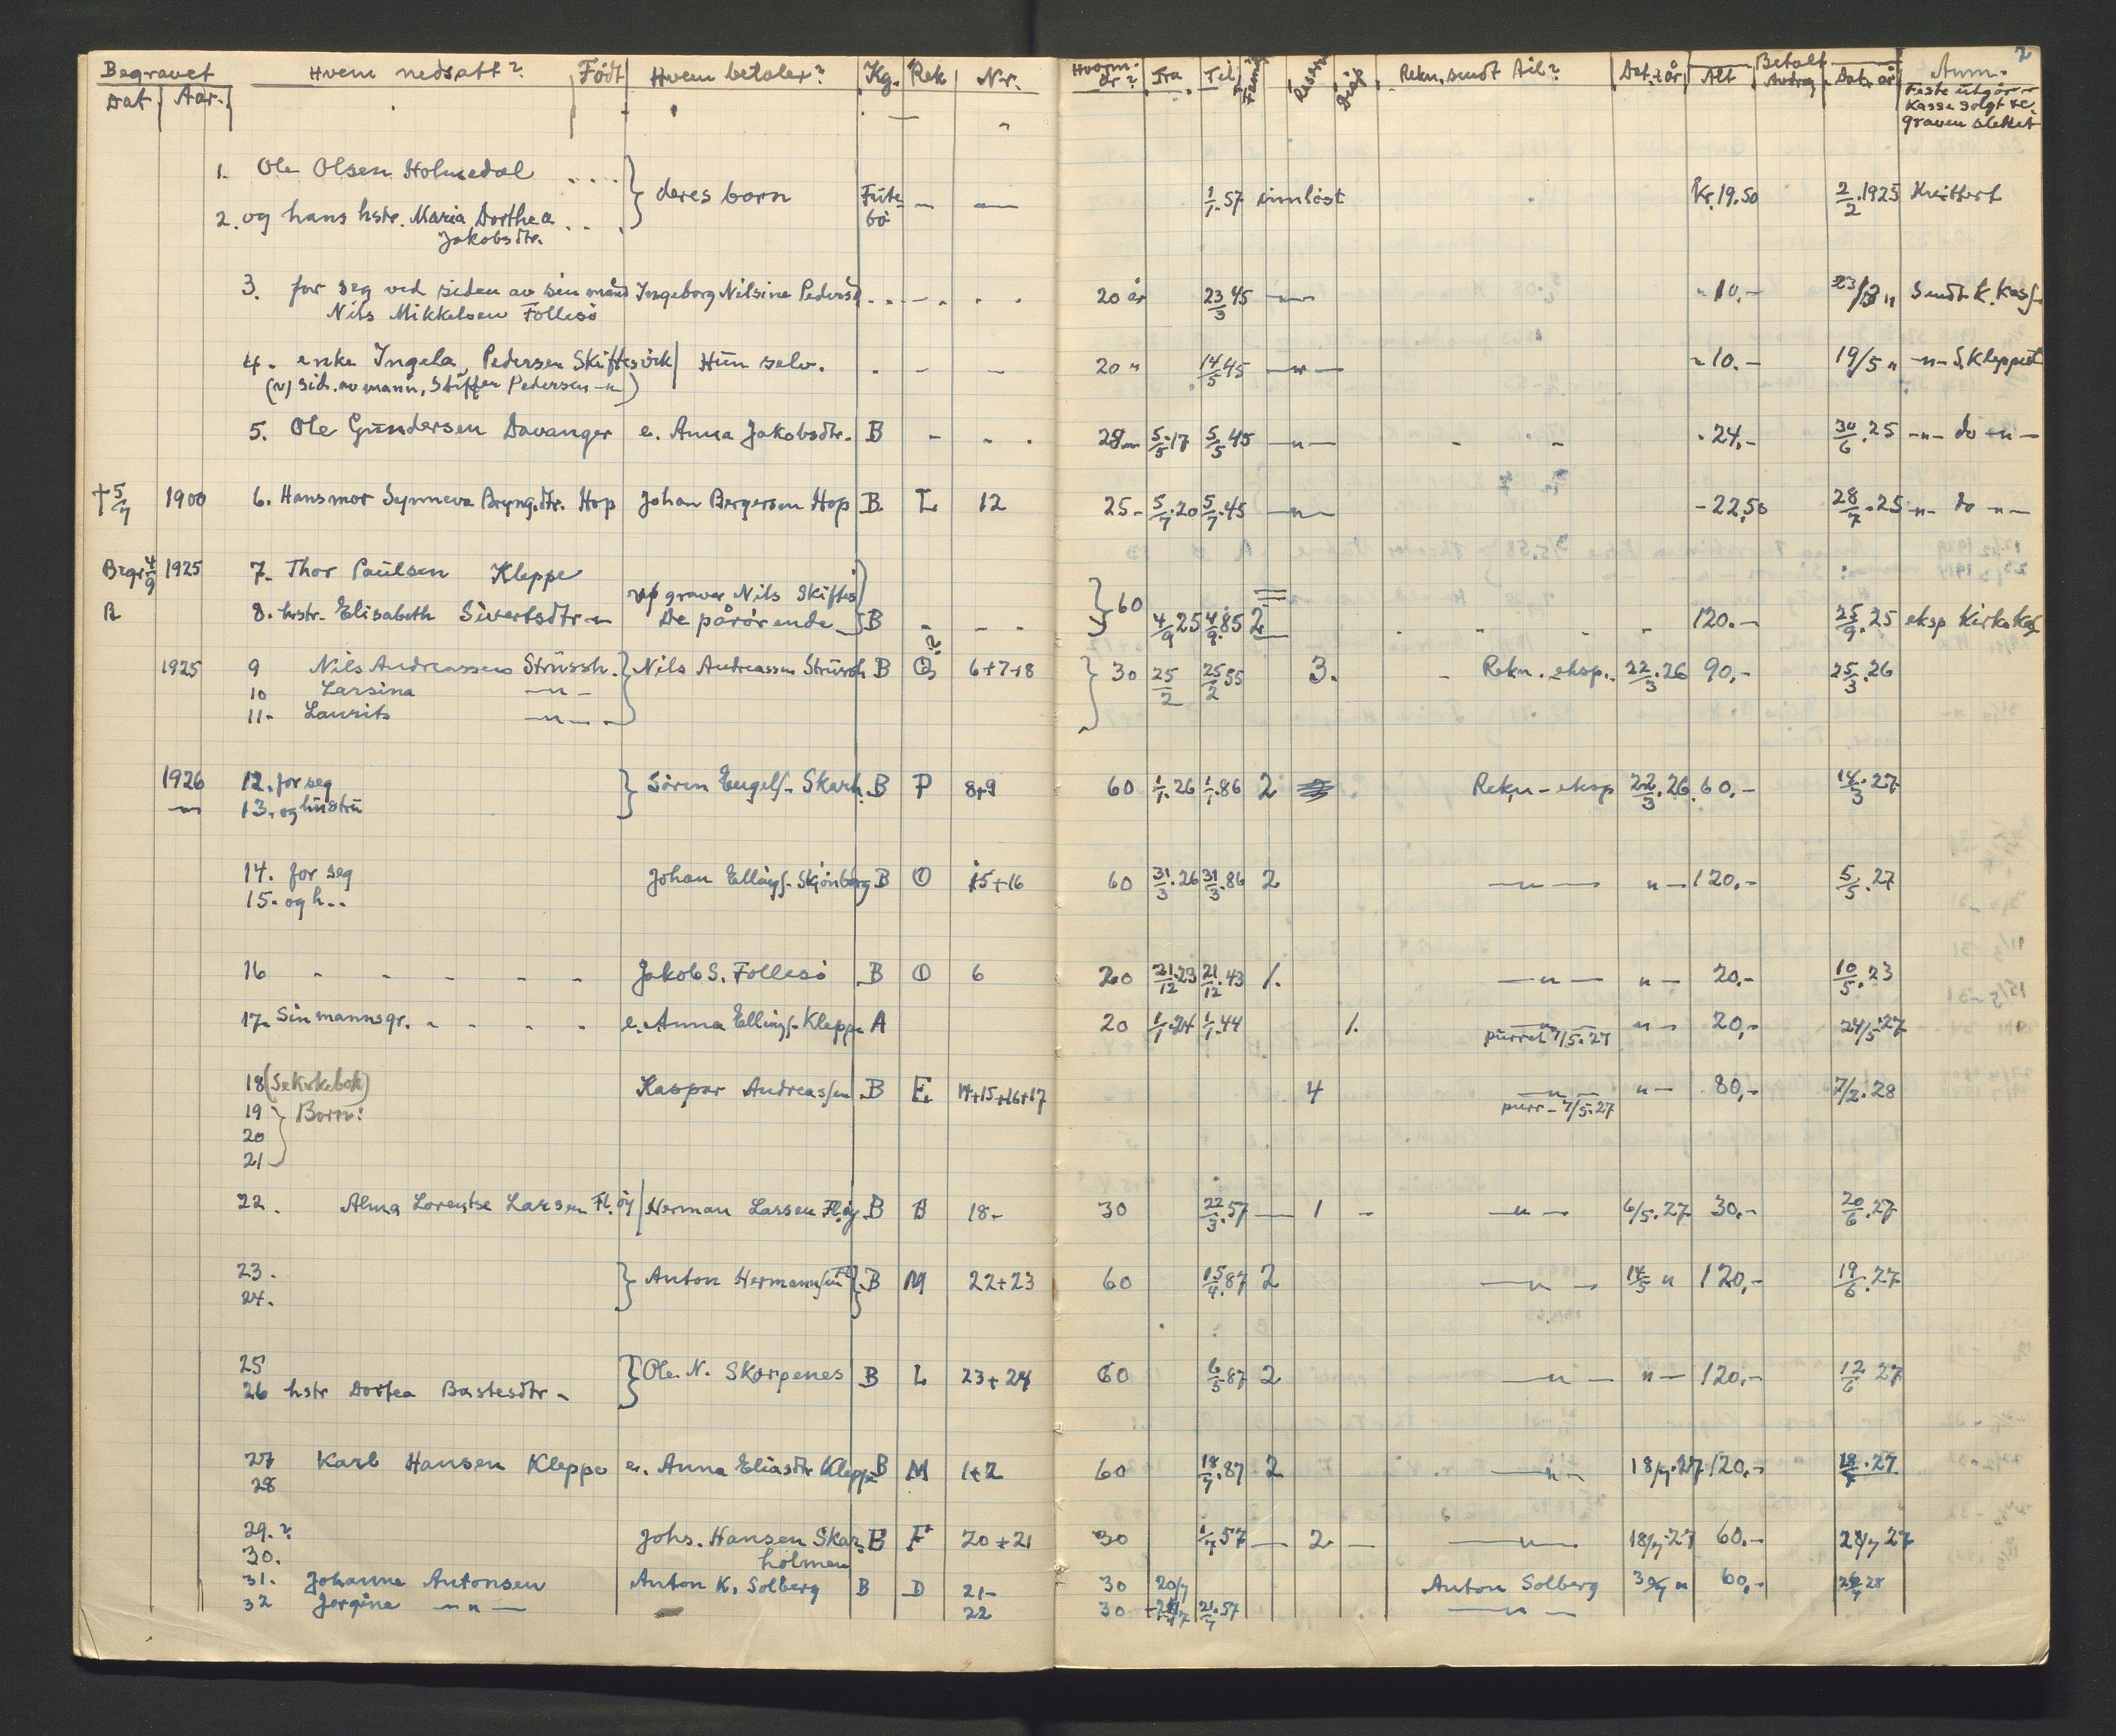 Begravet Hvem nedsatt? Født Hvem betaler? Kg. Rek Nr. Hvorm. år? Fra Til Rekn. sendt til? Dat. år Betalt Anm. 2
Dat. Aar. Alt Dat. år Feste utgår
Kasse solgt
graven slettet
1. Ole Olsen Holmedal
2. og hans hstr. Maria Dorthea Jakobsdtr. } deres born — — 1/1.57 innløst Kr. 19.50 2/2.1925 Kvittert
3. for seg ved siden av sin mand Ingeborg Nilsine Pedersd. 20 år 23/3 45 —"— " 10.- Sendt K. Kass
Nils Mikkelsen Follesö
4. enke Ingela Pedersen Skiftesvik Hun selv. 20 " 14/5 45 —"— " 10.- 19/5 " —"— S. Kleppe
(v/ sid. av mann, Steffen Pedersen —"—)
5. Ole Gundersen Davanger e. Anna Jakobsdtr. B 28 — 5/5.17 5/5 45 —"— 24.- 30/6.25 —"— do —"—
† 5/7 1900 6. Hans mor Synneva Bryng.dtr. Hop Johan Bergersen Hop B. L 12 25 - 5/7.20 5/7.45 —"— - 22,50 28/7.25 —"— do —"—
Begr. 4/9 1925 7. Thor Paulsen Kleppe
v/ graver Nils Skiftes
8. hstr. Elisabeth Sivertsdtr —"— De pårörende B } 60 4/9 25 4/9.85 2 120.- 25/9.25 eksp. Kirkekas
1925 9 Nils Andreassen Strüssh. Nils Andreassen Strüssh B 6+7+8 } 30 25/2 25/2 55 3. Rekn. eksp. 22/3.26 90,- 25/3.26
10 Larsina —"—
11. Laurits —"—
1926 12. for seg } Sören Engelf. Skarh. B P 8+9 60 1/1.26 1/1.86 2 Rekn - eksp 22/3.26 60,- 14/3.27
—"— 13. og hustru
14. for seg Johan Ellingf. Skjönberg B O 15+16 60 31/3.26 31/3.86 2 —"— "— 120,- 5/5.27
15. og h..
16 - - - - - Jakob S. Follesö B O 6 20 21/12.23 21/12.43 1. —"— "— 20.- 10/5.23
17. Sin mannsgr. e. Anna Ellingf. Kleppe A 20 1/1.24 1/1.44 1. —"— "— 20,- 24/5.27
purret 7/5.27
18 Kaspar Andreassen B E. 14+15+16+17 4 —"— "— 80,- 7/2.28
purr - 7/5.27
19 } Born:
20
21
22. Alma Lorentse Larsen Fl.öy Herman Larsen Fl.öy B B 18.- 30 22/3.57 — 1 - —"— 6/5.27 30,- 20/6.27
23. } Anton Hermannsen B M 22+23 60 15/4.87 2 —"— 14/5 " 120,- 19/6.27
24.
25 } Ole N. Skarpenes B L 23+24 60 6/5 87 2 —"— "— 120,- 12/6 27
26 hstr Dortea Bastesdtr.
27 Karl Hansen Kleppe e. Anna Eliasdtr Kleppe B M 1+2 60 18/7.87 2 —"— 18/7.27 120,- 18/7.27
28
29.? Johs. Hansen Skar- B F 20+21 30 1/7 57 — 2 — —"— 18/7.27 60.- 27
30. holmen
31. Johanne Antonsen Anton K. Solberg B D 21- 30 20/7 Anton Solberg 60,-
32 Jorgine —"— 22 30 21/7.57 —"—